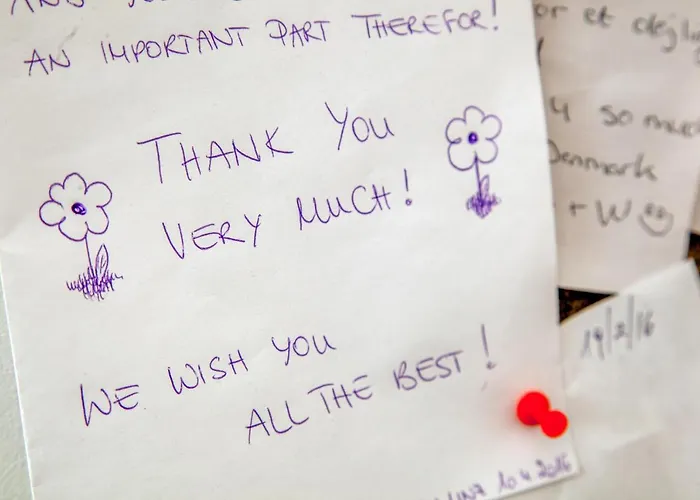 AN IMPORTANT PART THEREFOR!
THANK YOU
VERY MUCH!
WE WISH YOU
ALL THE BEST!
10.4.2016
or et dejlig
4 so much
Denmark
+ W
19/2/16